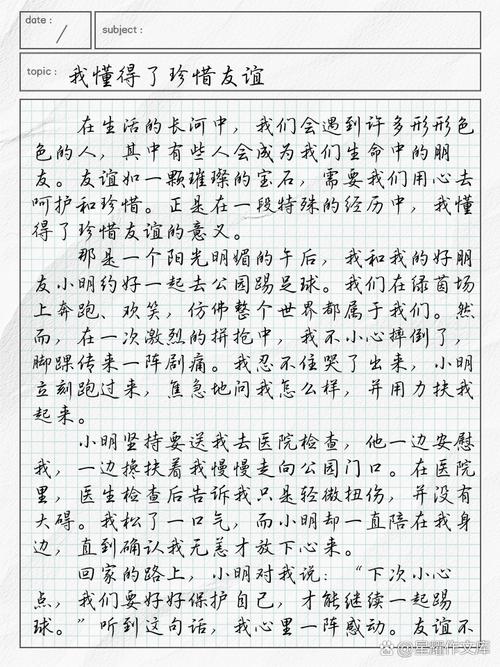 date:
subject:
topic: 我懂得了珍惜友谊
在生活的长河中，我们会遇到许多形形色
色的人，其中有些人会成为我们生命中的朋
友。友谊如一颗璀璨的宝石，需要我们用心去
呵护和珍惜。正是在一段特殊的经历中，我懂
得了珍惜友谊的意义。
那是一个阳光明媚的午后，我和我的好朋
友小明约好一起去公园踢足球。我们在绿茵场
上奔跑、欢笑，仿佛整个世界都属于我们。然
而，在一次激烈的拼抢中，我不小心摔倒了，
脚踝传来一阵剧痛。我忍不住哭了出来，小明
立刻跑过来，焦急地问我怎么样，并用力扶我
起来。
小明坚持要送我去医院检查，他一边安慰
我，一边搀扶着我慢慢走向公园门口。在医院
里，医生检查后告诉我只是轻微扭伤，并没有
大碍。我松了一口气，而小明却一直陪在我身
边，直到确认我无恙才放下心来。
回家的路上，小明对我说：“下次小心
点，我们要好好保护自己，才能继续一起踢
球。”听到这句话，我心里一阵感动。友谊不
星耀作文库